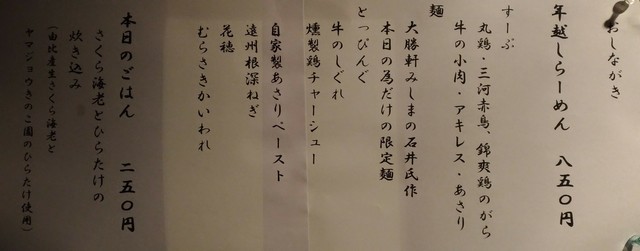 おしながき
年越しらーめん　八五〇円
すーぷ
丸鶏・三河赤鳥、錦爽鶏のがら
牛の小肉・アキレス・あさり
麺
大勝軒みしまの石井氏作
本日の為だけの限定麺
とっぴんぐ
牛のしぐれ
燻製鶏チャーシュー
自家製あさりペースト
遠州根深ねぎ
花穂
むらさきかいわれ
本日のごはん　二五〇円
さくら海老とひらたけの
炊き込み
（由比産生さくら海老と
ヤマジョウきのこ園のひらたけ使用）